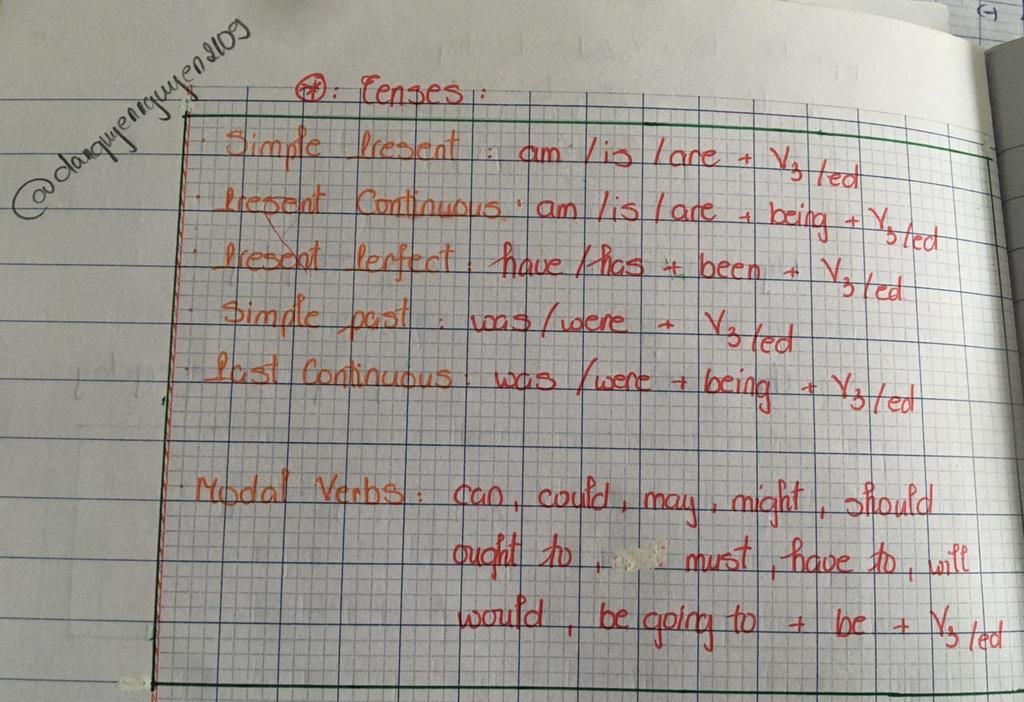 @danquyennguyen2109
(-)
* : Tenses :
. Simple Present : am /is /are + V3/ed
. Present Continuous : am /is /are + being + V3/ed
. Present Perfect : have /has + been + V3/ed
. Simple past : was/were + V3/ed
. Past Continuous : was /were + being + V3/ed
. Modal Verbs : can, could, may, might, should
ought to, must, have to, will
would, be going to + be + V3/ed